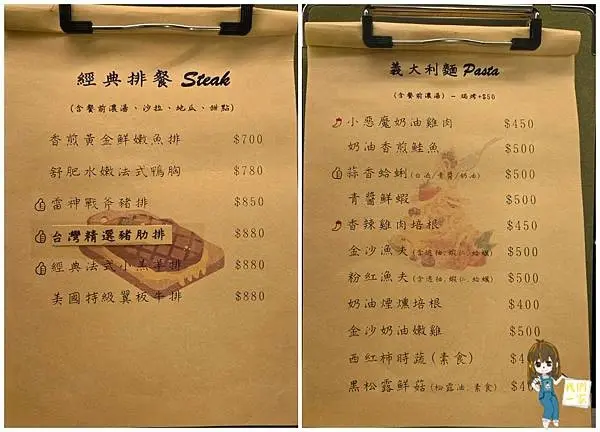 經典排餐 Steak
(含餐前濃湯、沙拉、地瓜、甜點)
香煎黃金鮮嫩魚排 $700
舒肥水嫩法式鴨胸 $780
雷神戰斧豬排 $850
台灣精選豬肋排 $880
經典法式小羔羊排 $880
美國特級翼板牛排 $880
義大利麵 Pasta
(含餐前濃湯) - 焗烤+$50
小惡魔奶油雞肉 $450
奶油香煎鮭魚 $500
蒜香蛤蜊(白酒/青醬/奶油) $500
青醬鮮蝦 $500
香辣雞肉培根 $450
金沙漁夫(含透抽,蝦仁,蛤蠣) $500
粉紅漁夫(含透抽,蝦仁,蛤蠣) $500
奶油煙燻培根 $400
金沙奶油嫩雞 $500
西紅柿時蔬(素食)
黑松露鮮菇(松露油,素食)
我們一家